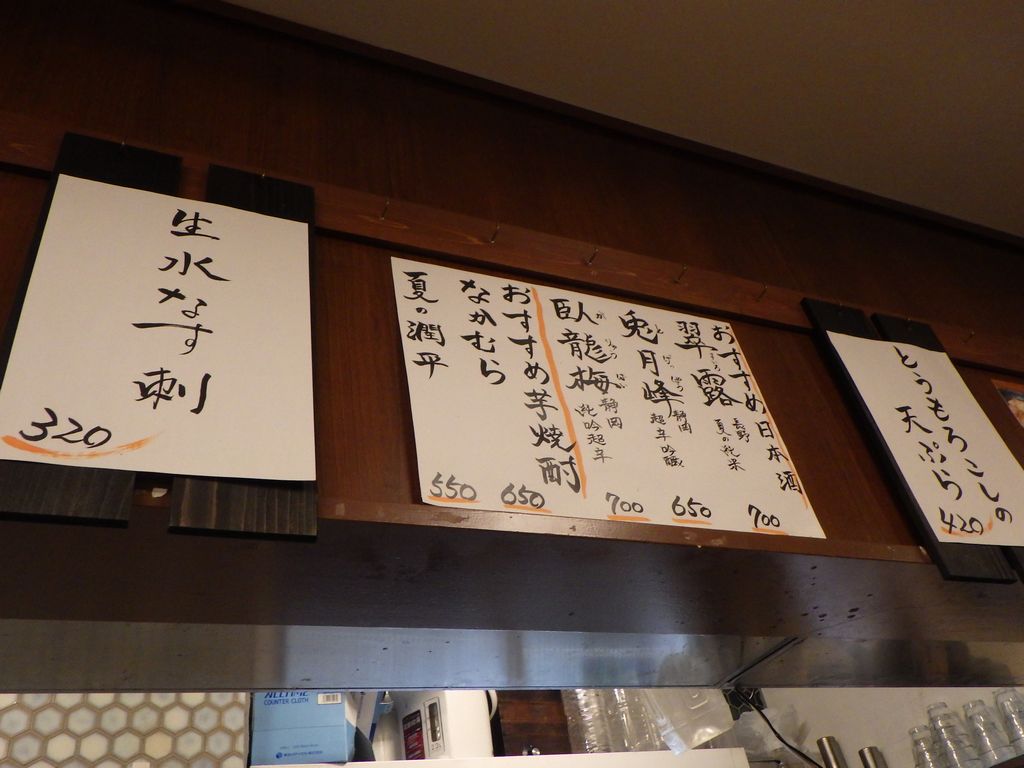 生水なす刺
320
おすすめ日本酒
翠露
長野
夏の純米
700
兎月峰
静岡
超辛吟醸
650
臥龍梅
がりゅうばい
静岡
純吟超辛
700
おすすめ芋焼酎
なかむら
650
夏の潤平
550
とうもろこしの
天ぷら
420
ALLTIME
COUNTER CLOTH